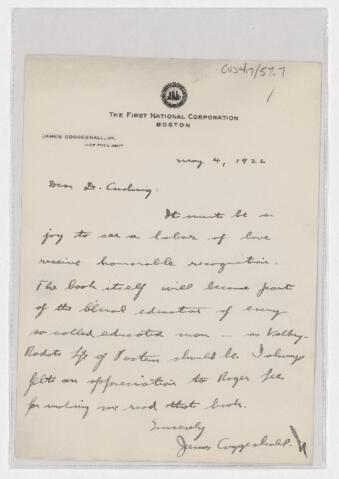 CUS417/57.7
1
THE FIRST NATIONAL CORPORATION
BOSTON
JAMES COGGESHALL, JR.
VICE PRESIDENT
May 4, 1926
Dear Dr. Cushing:
It must be a
joy to see a labor of love
receive honorable recognition.
The book itself will become part
of the liberal education of every
so called educated man – as Vallery-
Radot's Life of Pasteur should be. I always
felt an appreciation to Roger Lee
for making me read that book.
Sincerely
James Coggeshall Jr